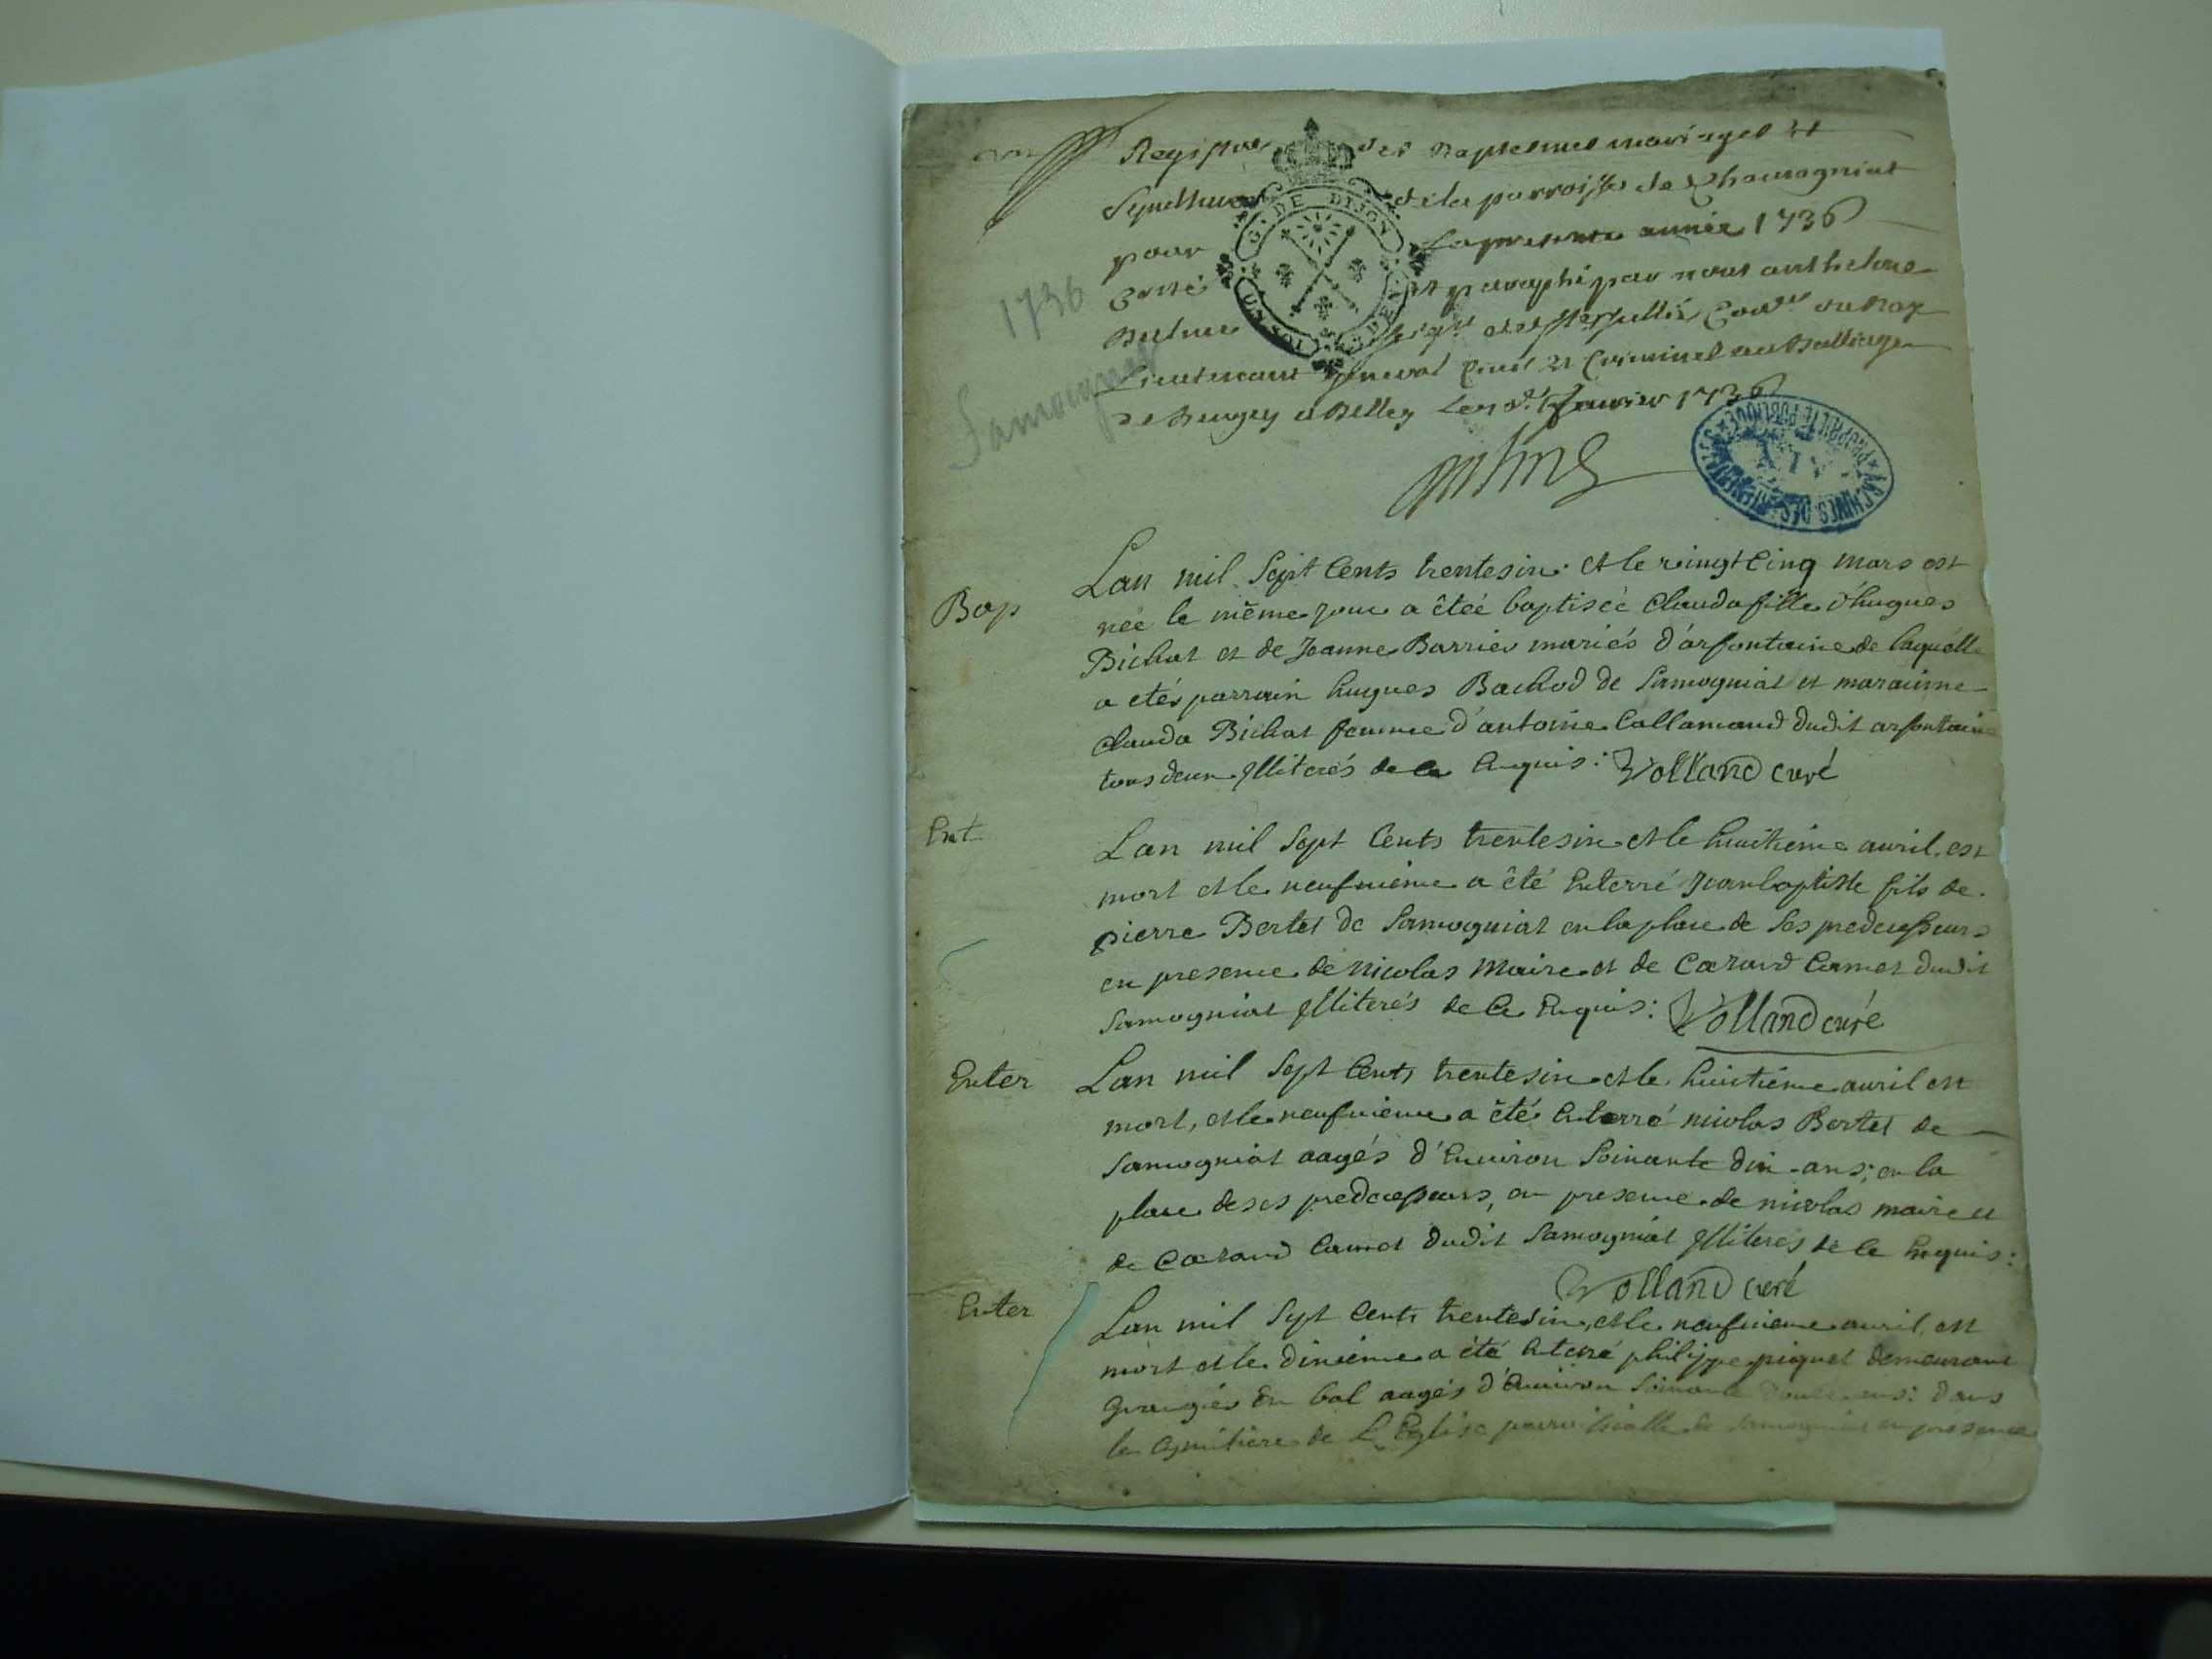 Registre des Baptesmes mariages et
Sepultures de la parroisse de Chamogniat
pour La presente année 1736
Cotté et paraphé par nous anthelme
Lieutenant general Civil et Criminel au Balliage
de Beugey a Belley Le Janvier 1736
G. DE DIJON
1736
Samognat
ARCHIVES DÉPARTEMENTALES
PROPRIÉTÉ PUBLIQUE
AIN
Bap
Lan mil Sept Cents trentesix et le vingt Cinq mars est
née le même jour a êteé baptiseé Clauda fille d'hugues
Bichat et de Jeanne Barrier mariés d'arfontaine de laquelle
a etés parrain hugues Bachod de Samogniat et maraime
Clauda Bichat femme d'antoine Callamand dudit arfontaine
tous deux Illiterés de ce Enquis : Volland curé
Ent
Lan mil Sept Cents trentesix et le huitieme avril est
mort et le neufvieme a êté Enterré Jean baptiste fils de
pierre Bertet de Samogniat en la place de Ses predecesseurs
en presence de Nicolas Maire et de Cæzard Carmet dudit
Samogniat Illiterés de Ce Enquis : Volland curé
Enter
Lan mil Sept Cents trentesix et le huictiéme avril est
mort, et le neufvieme a êté Enterré nicolas Bertet de
Samogniat aagés d'Environ Soixante dix ans, en la
place de ses predecesseurs, en presence de nicolas maire et
de Cæzard Carmet dudit Samogniat Illiterés de Ce Enquis :
Volland curé
Enter
Lan mil Sept Cents trentesix, et le neufvieme avril est
mort et le dixieme a été Enterré philippe piquet demeurant
Grangier En bal aagés d'Environ Soixante ans : dans
le Cymitiere de L'Eglise parroissialle de Samogniat en presence